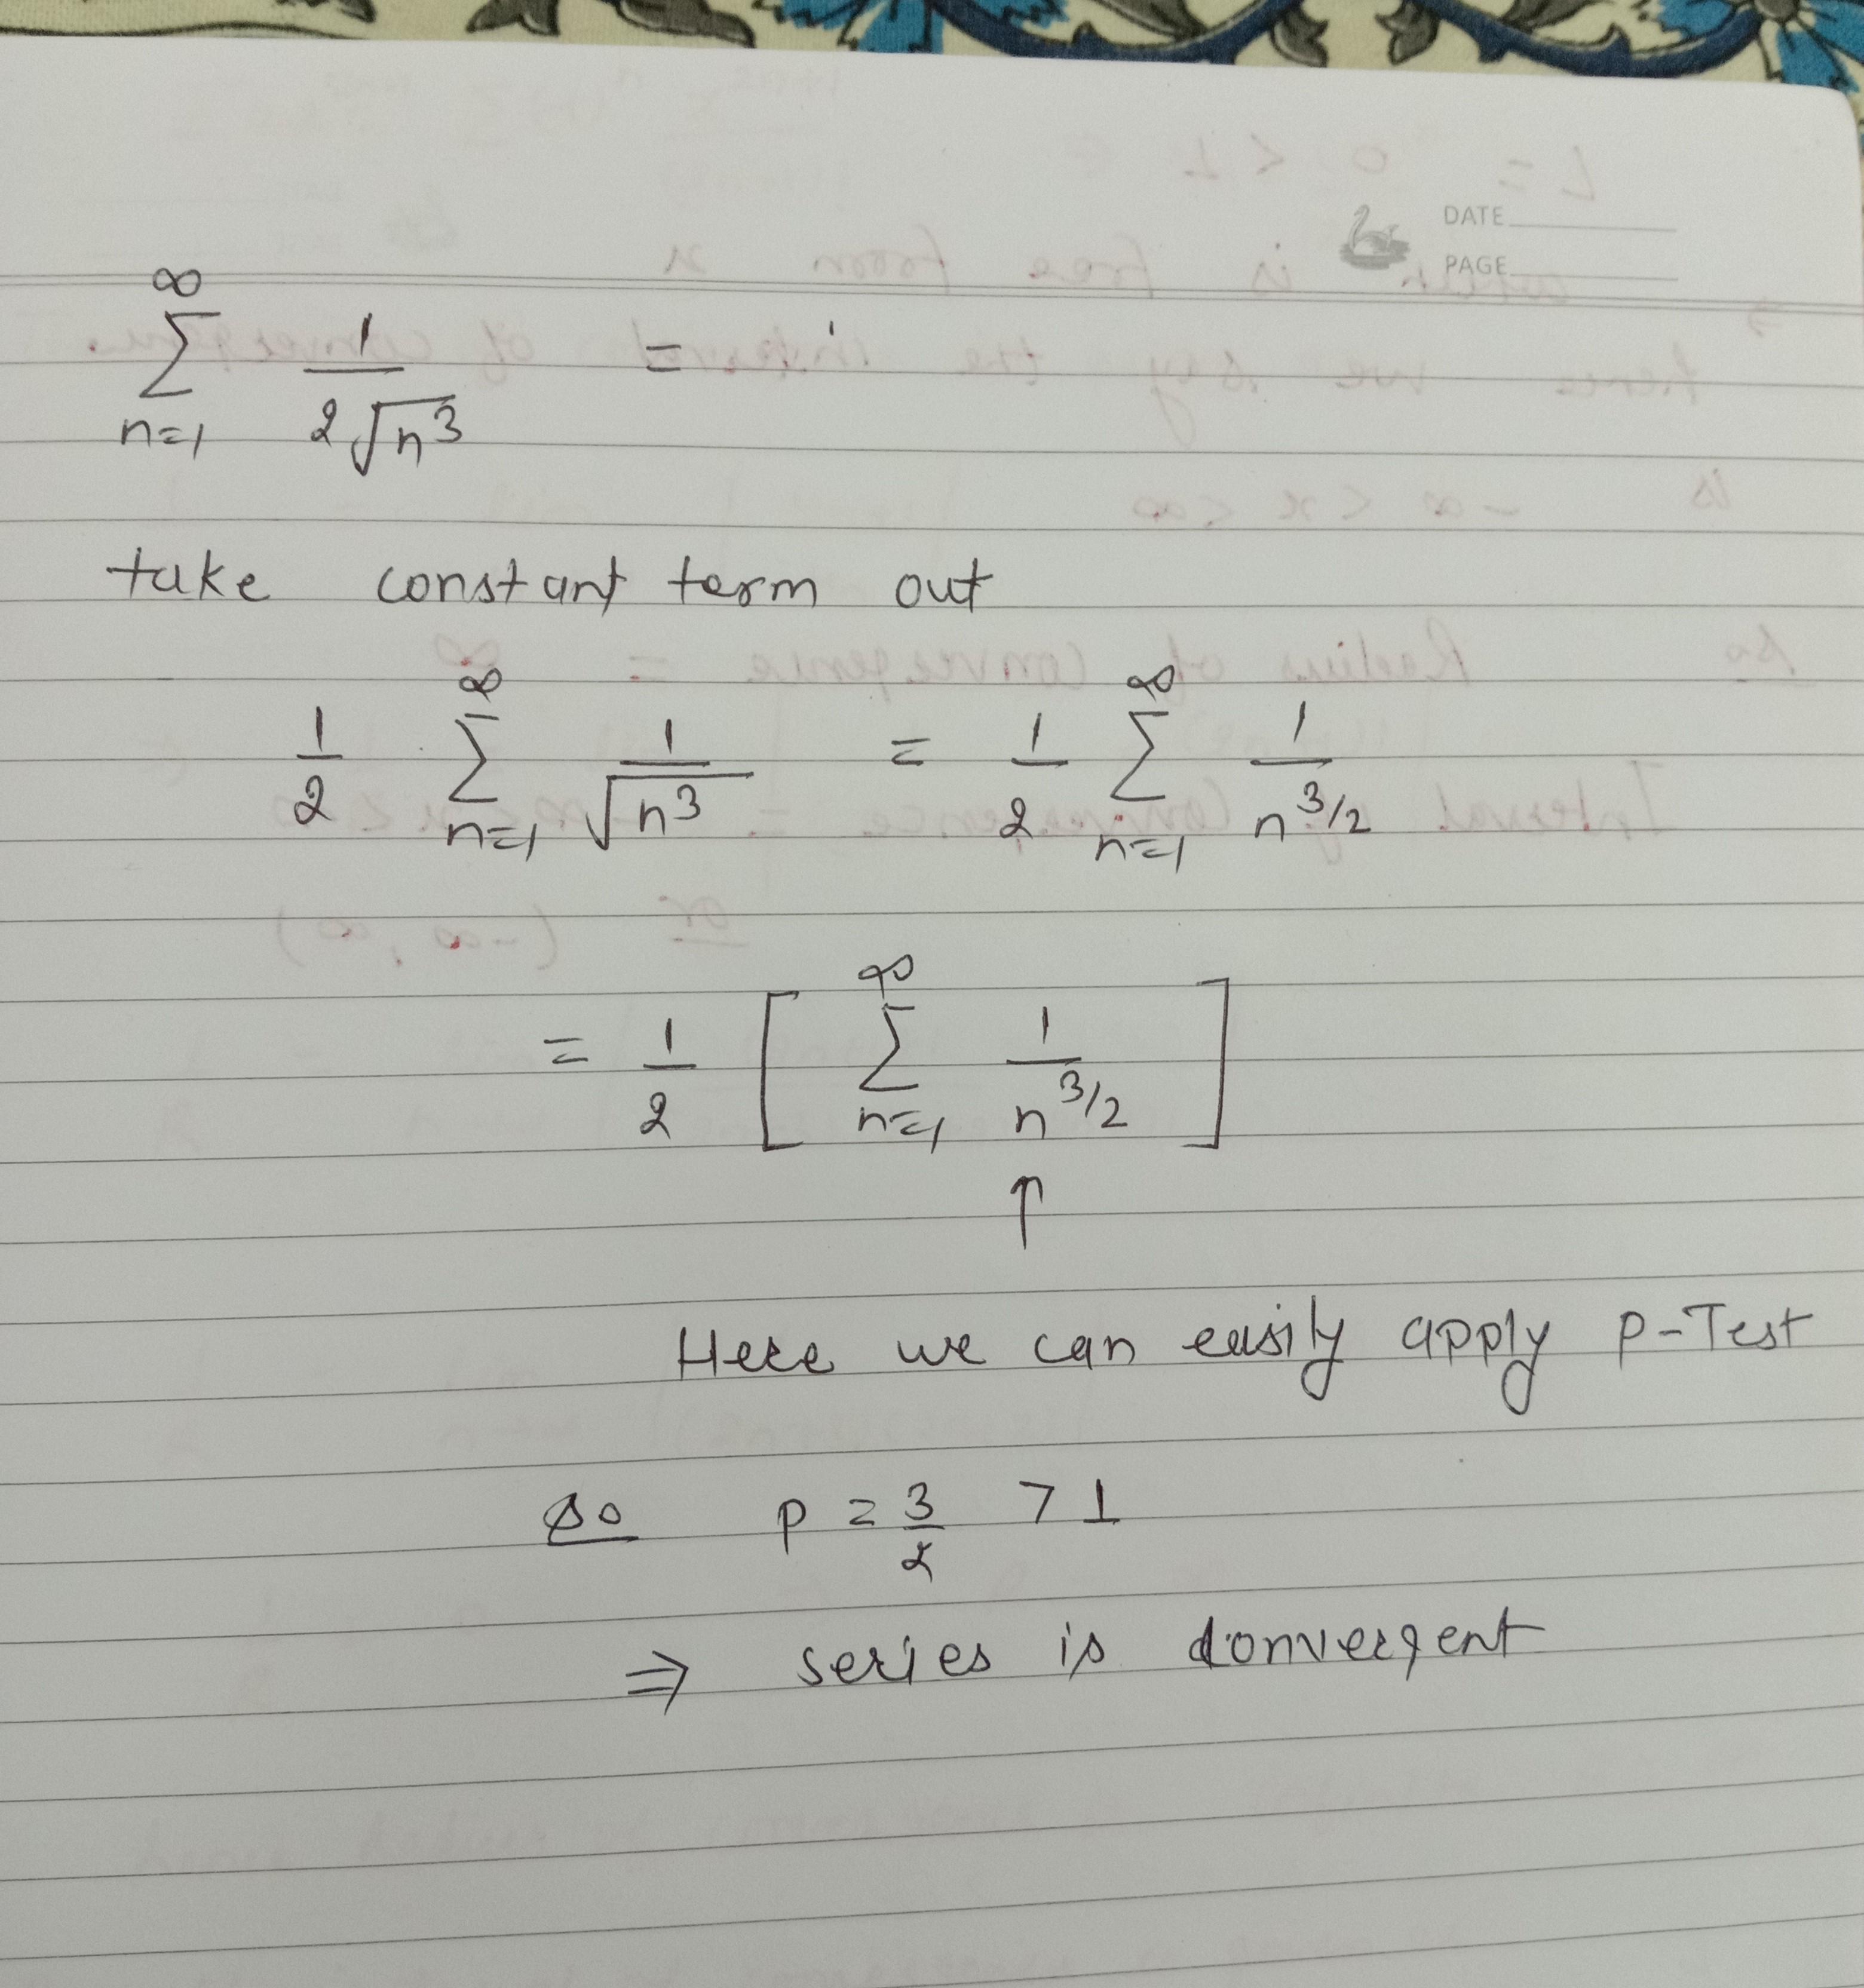 DATE
PAGE
∞
∑ 1/(2√n³) =
n=1
take constant term out
1/2 ∑_{n=1}^{∞} 1/√n³ = 1/2 ∑_{n=1}^{∞} 1/n^{3/2}
= 1/2 [ ∑_{n=1}^{∞} 1/n^{3/2} ]
↑
Here we can easily apply P-Test
so p = 3/2 > 1
⇒ series is convergent